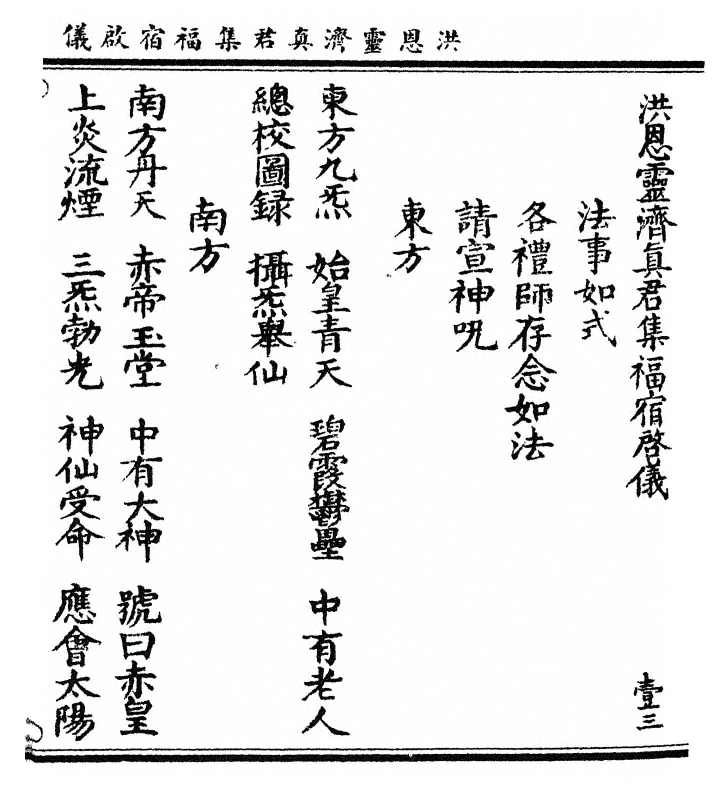 洪恩靈濟真君集福宿啟儀
洪恩靈濟真君集福宿啓儀 壹三
法事如式
各禮師存念如法
請宣神呪
東方
東方九炁 始皇青天 碧霞鬱壘 中有老人
總校圖録 攝炁舉仙
南方
南方丹天 赤帝玉堂 中有大神 號曰赤皇
上炎流煙 三炁勃光 神仙受命 應會太陽